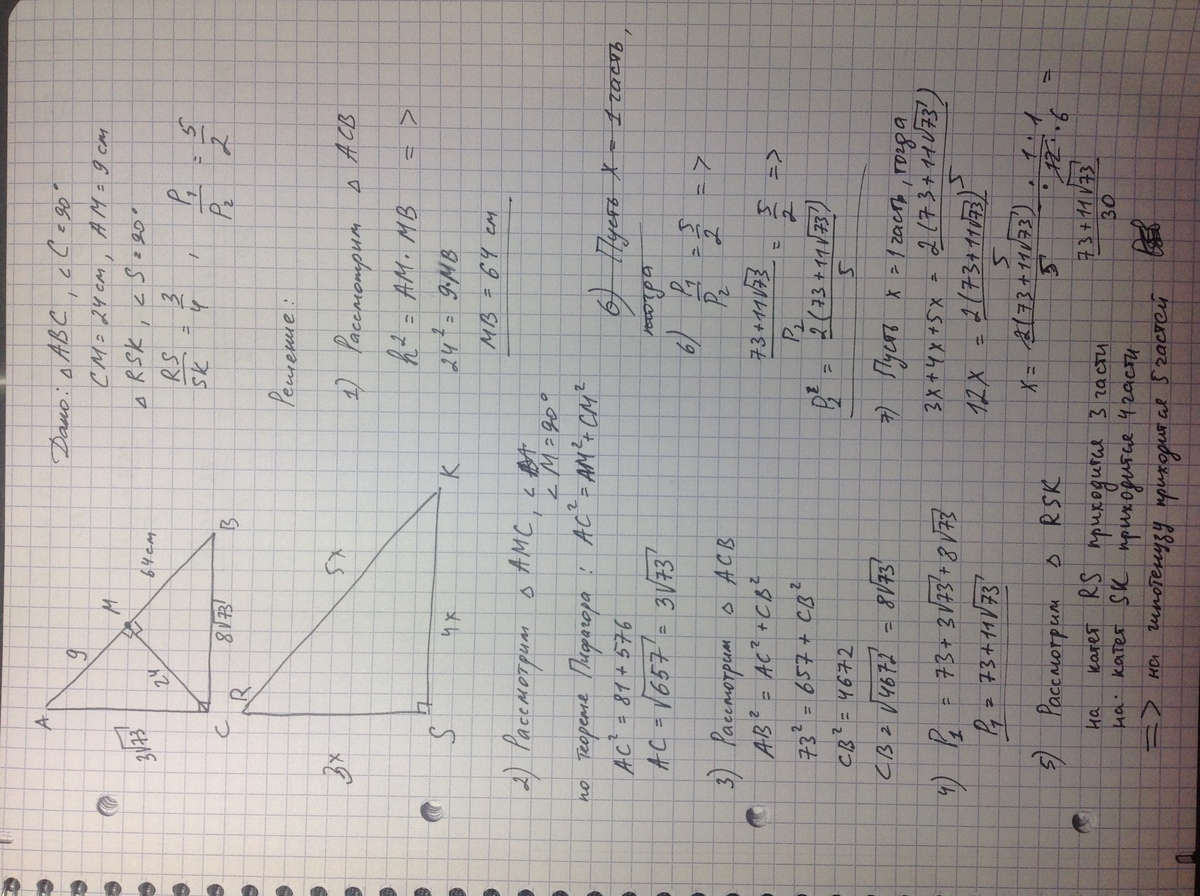 A
9
M
64см
B
24
3√73
C
8√73
R
5x
3x
S
4x
K
Дано: △ABC, ∠C = 90°
CM = 24см, AM = 9 см
△ RSK, ∠S = 90°
RS/SK = 3/4, P₁/P₂ = 5/2
Решение:
1) Рассмотрим △ ACB
h² = AM · MB
24² = 9·MB =>
MB = 64 см
2) Рассмотрим △ AMC, ∠
∠M = 90°
по теореме Пифагора : AC² = AM² + CM²
AC² = 81 + 576
AC = √657 = 3√73
3) Рассмотрим △ ACB
AB² = AC² + CB²
73² = 657 + CB²
CB² = 4672
CB = √4672 = 8√73
4) P₁ = 73 + 3√73 + 8√73
P₁ = 73 + 11√73
5) Рассмотрим △ RSK
на катет RS приходится 3 части
на катет SK приходится 4 части
=> на гипотенузу приходится 5 частей
6) Пусть x = 1 часть,
тогда
6) P₁/P₂ = 5/2 =>
73+11√73/P₂ = 5/2 =>
P₂ = 2(73+11√73)/5
7) Пусть x = 1 часть, тогда
3x + 4x + 5x = 2(73+11√73)/5
12x = 2(73+11√73)/5
x = 2(73+11√73)/5 · 1/12 · 1/6 =
73+11√73/30